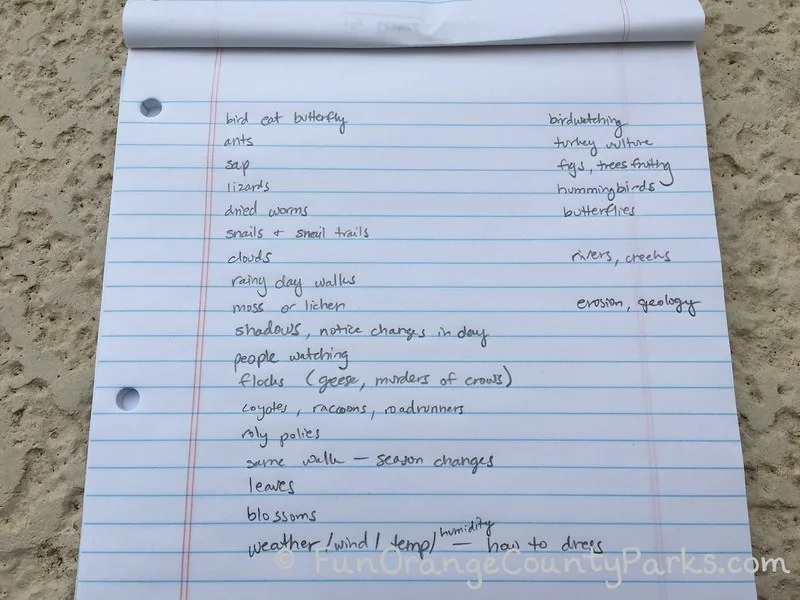 bird eat butterfly
ants
sap
lizards
dried worms
snails + snail trails
clouds
rainy day walks
moss or lichen
shadows, notice changes in day
people watching
flocks (geese, murders of crows)
coyotes, raccoons, roadrunners
roly polies
same walk — season changes
leaves
blossoms
weather/wind/temp/humidity — how to dress
birdwatching
turkey vulture
figs, trees fruiting
hummingbirds
butterflies
rivers, creeks
erosion, geology
© FunOrangeCountyParks.com